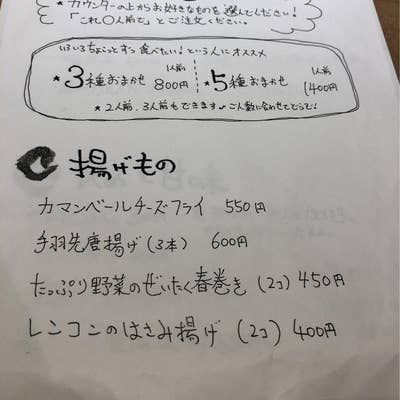 * カウンターの上からお好きなものを選んでください!
「これ〇人前で」とご注文ください。
いろいろちょっとずつ食べたい!という人にオススメ
★3種おまかせ 1人前 800円 ★5種おまかせ 1人前 1400円
★2人前、3人前もできます✓ご人数に合わせてどうぞ!
揚げもの
カマンベールチーズフライ 550円
手羽先唐揚げ(3本) 600円
たっぷり野菜のぜいたく春巻き(2コ) 450円
レンコンのはさみ揚げ(2コ) 400円